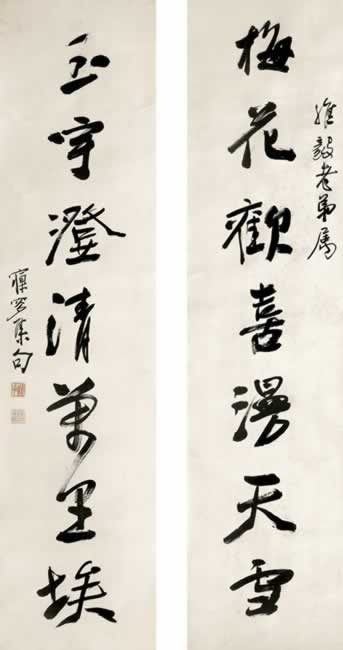 梅花歡喜漫天雪
維毅老弟屬
玉宇澄清萬里埃
集句